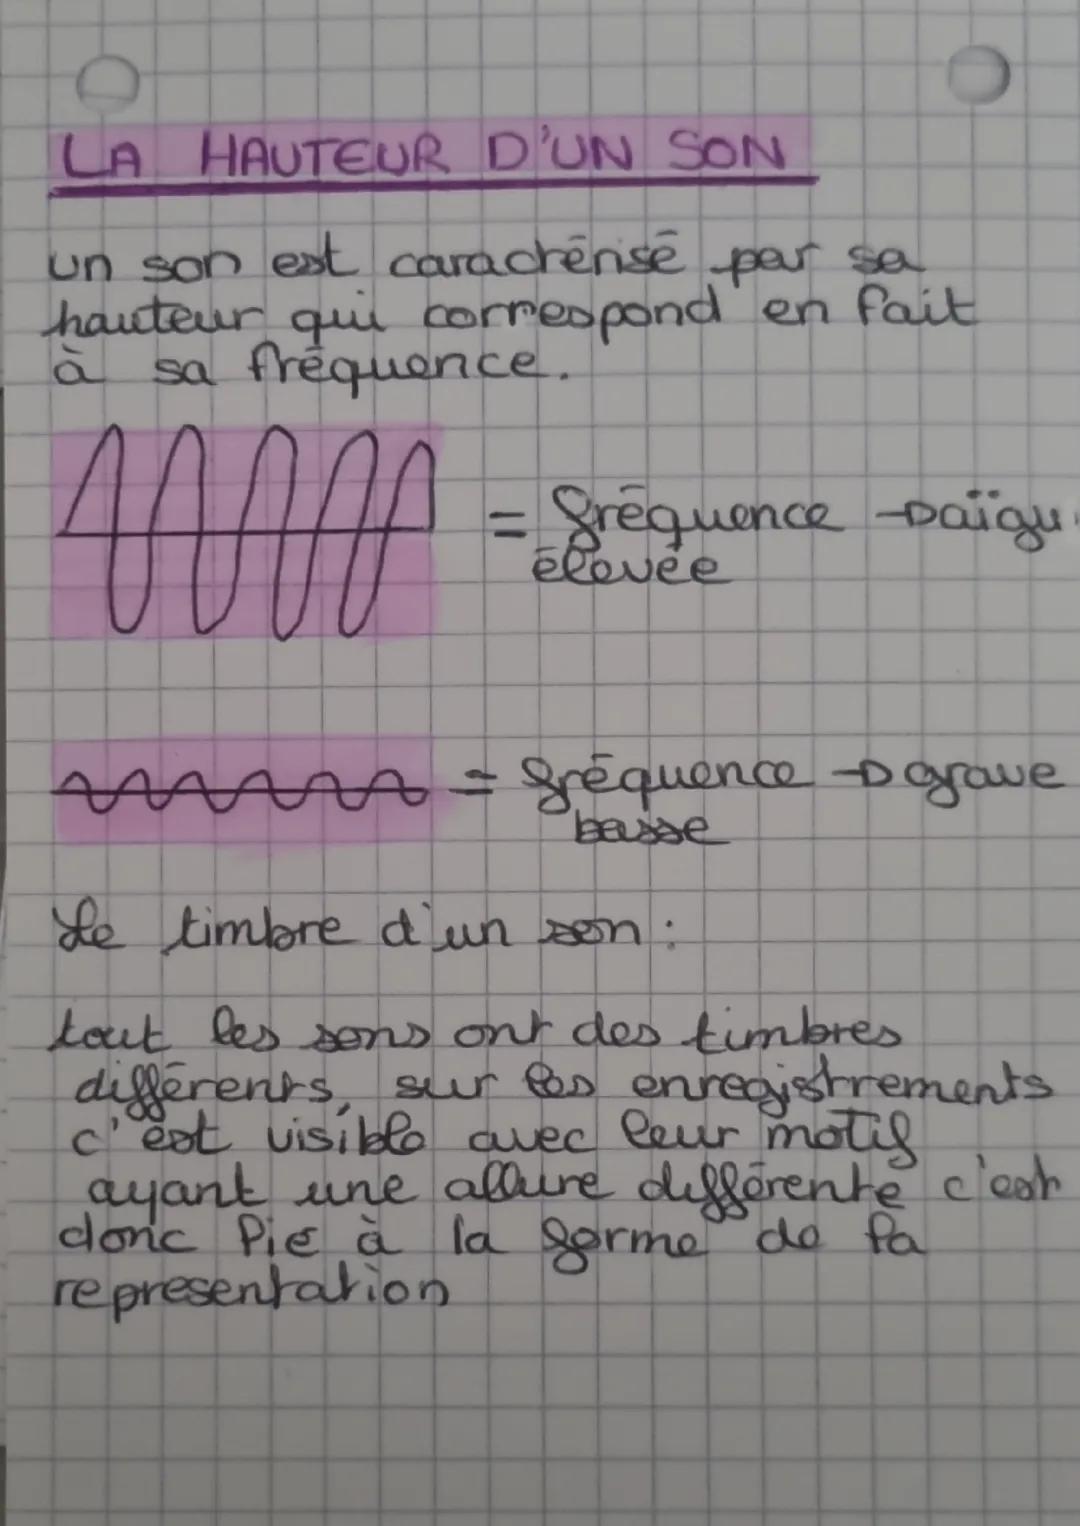 LA HAUTEUR D'UN SON
un son est caractérisé par sa
hauteur qui correspond en fait
à sa fréquence.
= fréquence → aïgu
élevée
= fréquence → grave
basse
Le timbre d'un son :
tout les sons ont des timbres
différents, sur les enregistrements
c'est visible avec leur motif
ayant une allure différente c'est
donc lié à la forme de la
representation